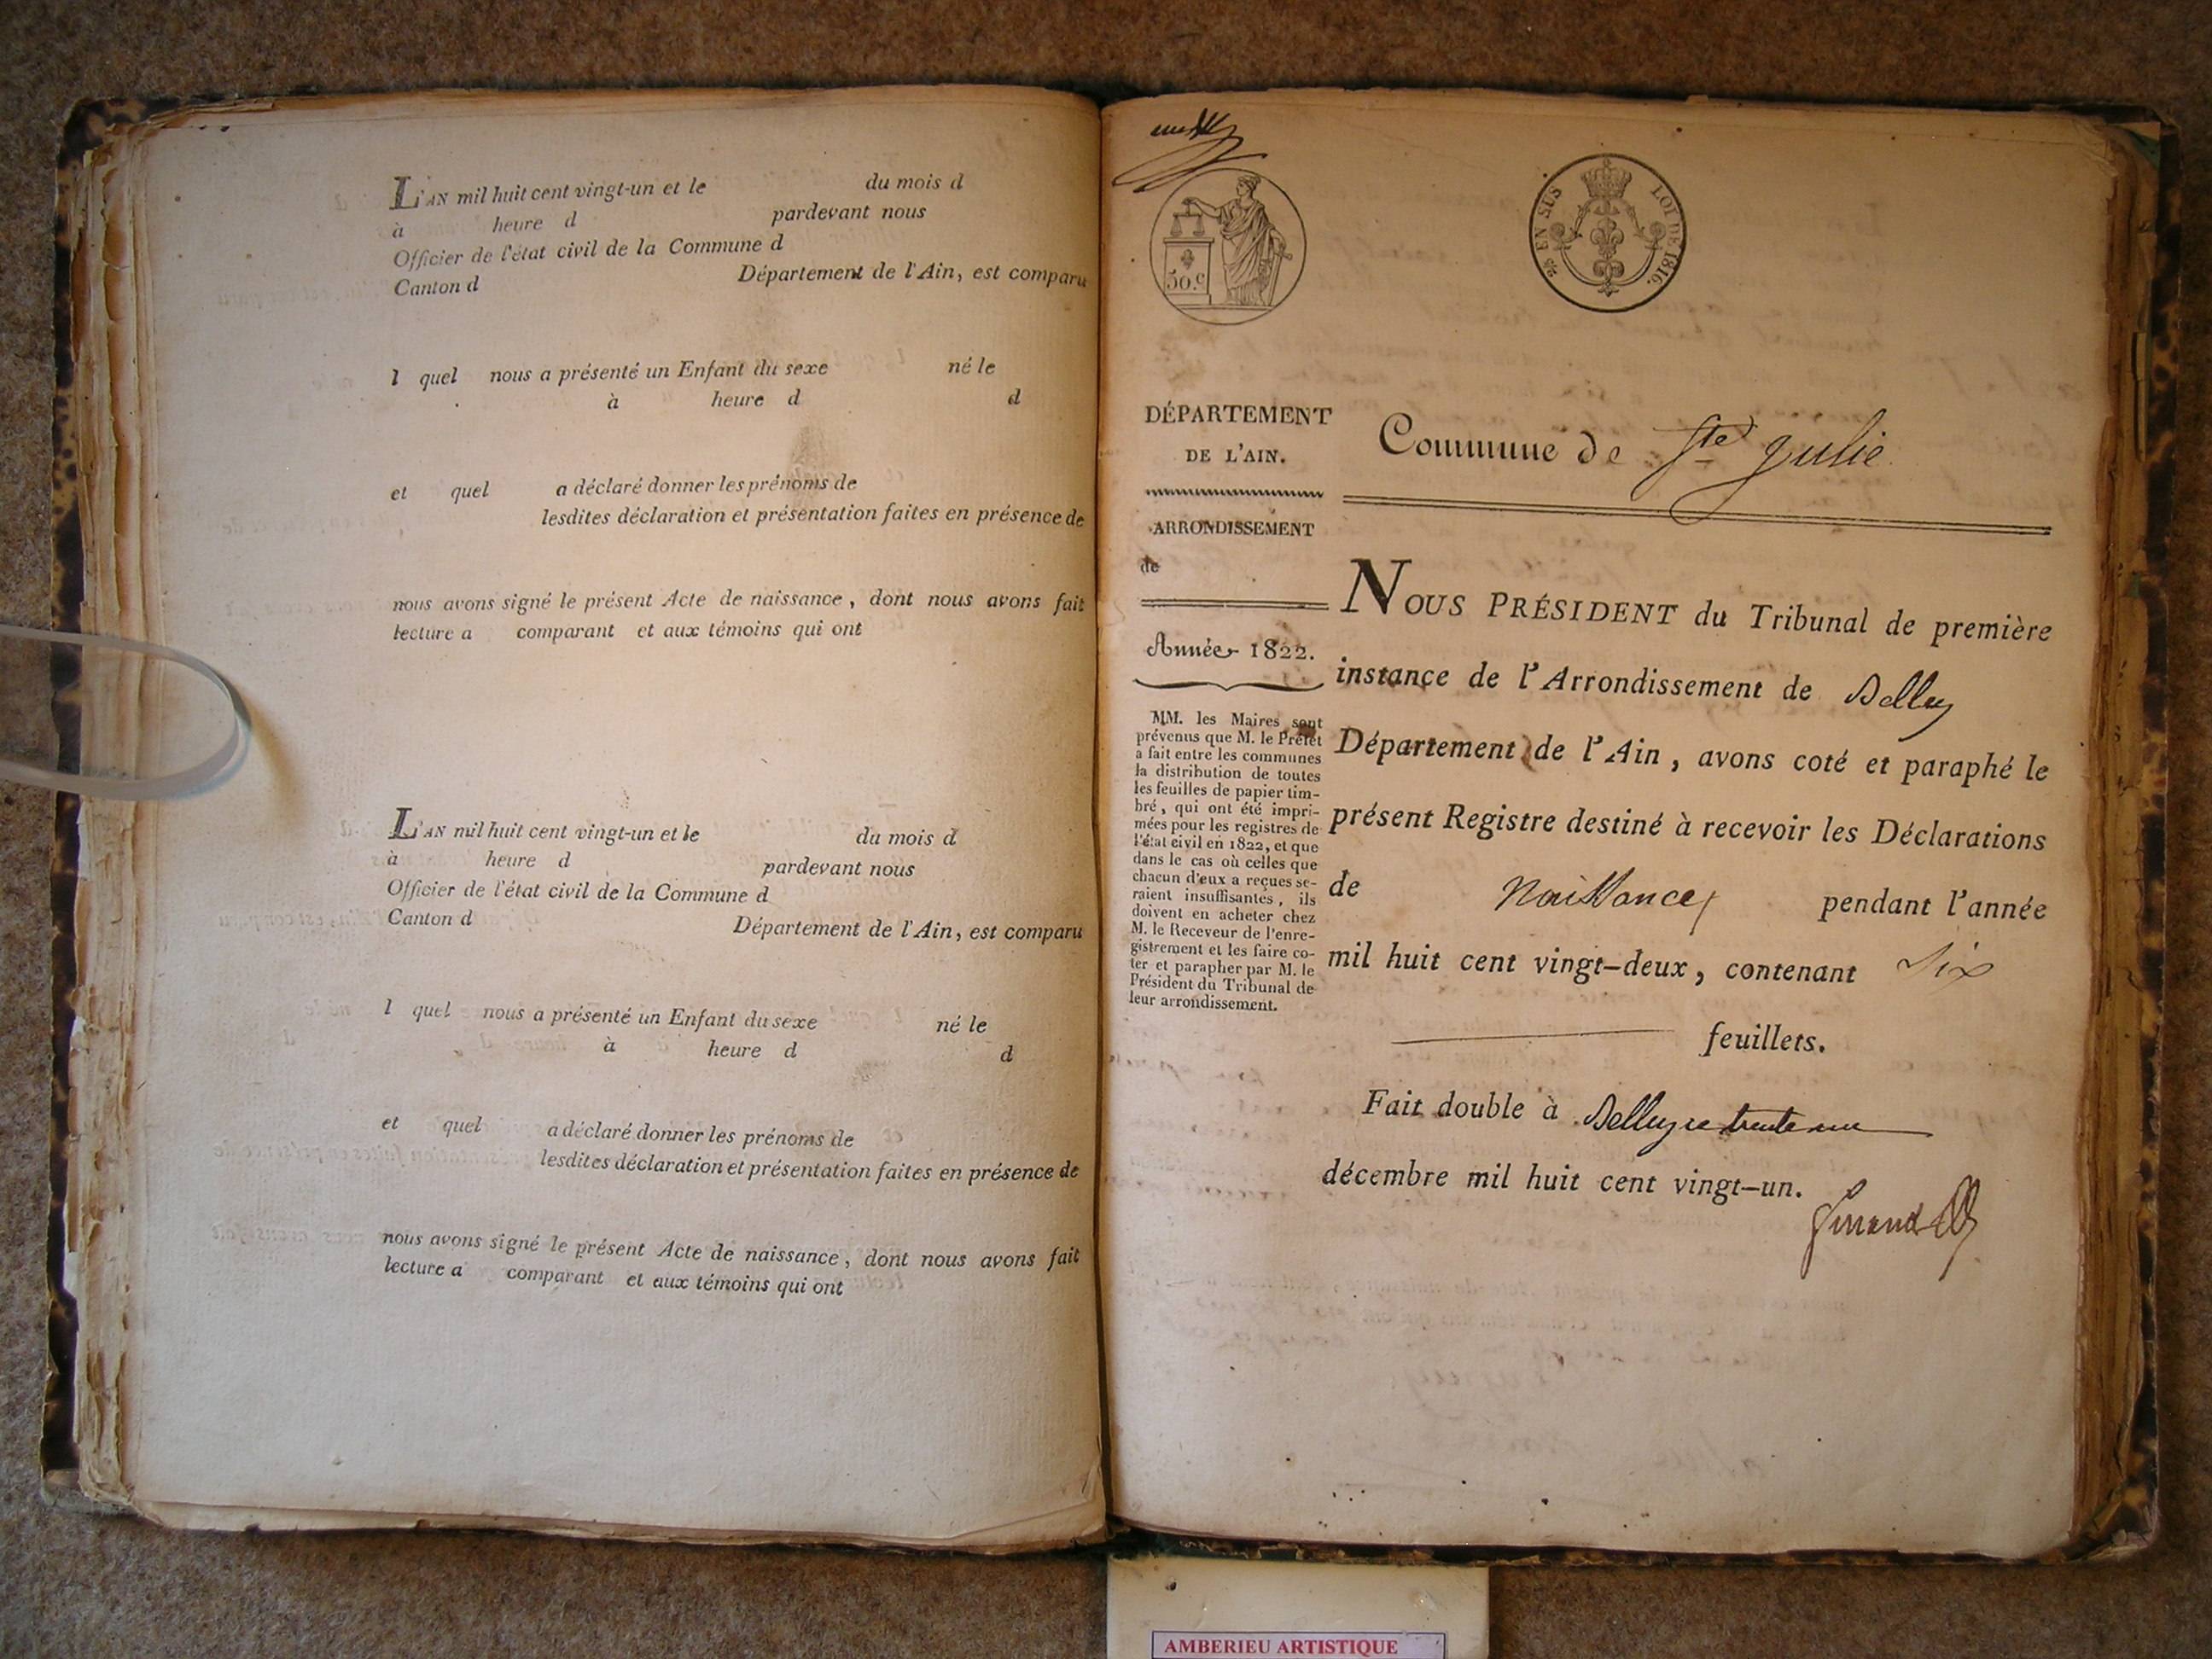 L'AN mil huit cent vingt-un et le du mois d
à heure d pardevant nous
Officier de l'état civil de la Commune d
Canton d Département de l'Ain, est comparu
l quel nous a présenté un Enfant du sexe né le
à heure d d
et quel a déclaré donner les prénoms de
lesdites déclaration et présentation faites en présence de
nous avons signé le présent Acte de naissance, dont nous avons fait
lecture a comparant et aux témoins qui ont
L'AN mil huit cent vingt-un et le du mois d
à heure d pardevant nous
Officier de l'état civil de la Commune d
Canton d Département de l'Ain, est comparu
l quel nous a présenté un Enfant du sexe né le
à heure d d
et quel a déclaré donner les prénoms de
lesdites déclaration et présentation faites en présence de
nous avons signé le présent Acte de naissance, dont nous avons fait
lecture a comparant et aux témoins qui ont
50.c
25 EN SUS LOI DE 1816.
DÉPARTEMENT
DE L'AIN.
ARRONDISSEMENT
de
Année 1822.
MM. les Maires sont
prévenus que M. le Préfet
a fait entre les communes
la distribution de toutes
les feuilles de papier tim-
bré, qui ont été impri-
mées pour les registres de
l'état civil en 1822, et que
dans le cas où celles que
chacun d'eux a reçues se-
raient insuffisantes, ils
doivent en acheter chez
M. le Receveur de l'enre-
gistrement et les faire co-
ter et parapher par M. le
Président du Tribunal de
leur arrondissement.
Commune de Ste Julie
NOUS PRÉSIDENT du Tribunal de première
instance de l'Arrondissement de Belley
Département de l'Ain, avons coté et paraphé le
présent Registre destiné à recevoir les Déclarations
de Naissances pendant l'année
mil huit cent vingt-deux, contenant Six
feuillets.
Fait double à Belley ce trente un
décembre mil huit cent vingt-un.
AMBERIEU ARTISTIQUE